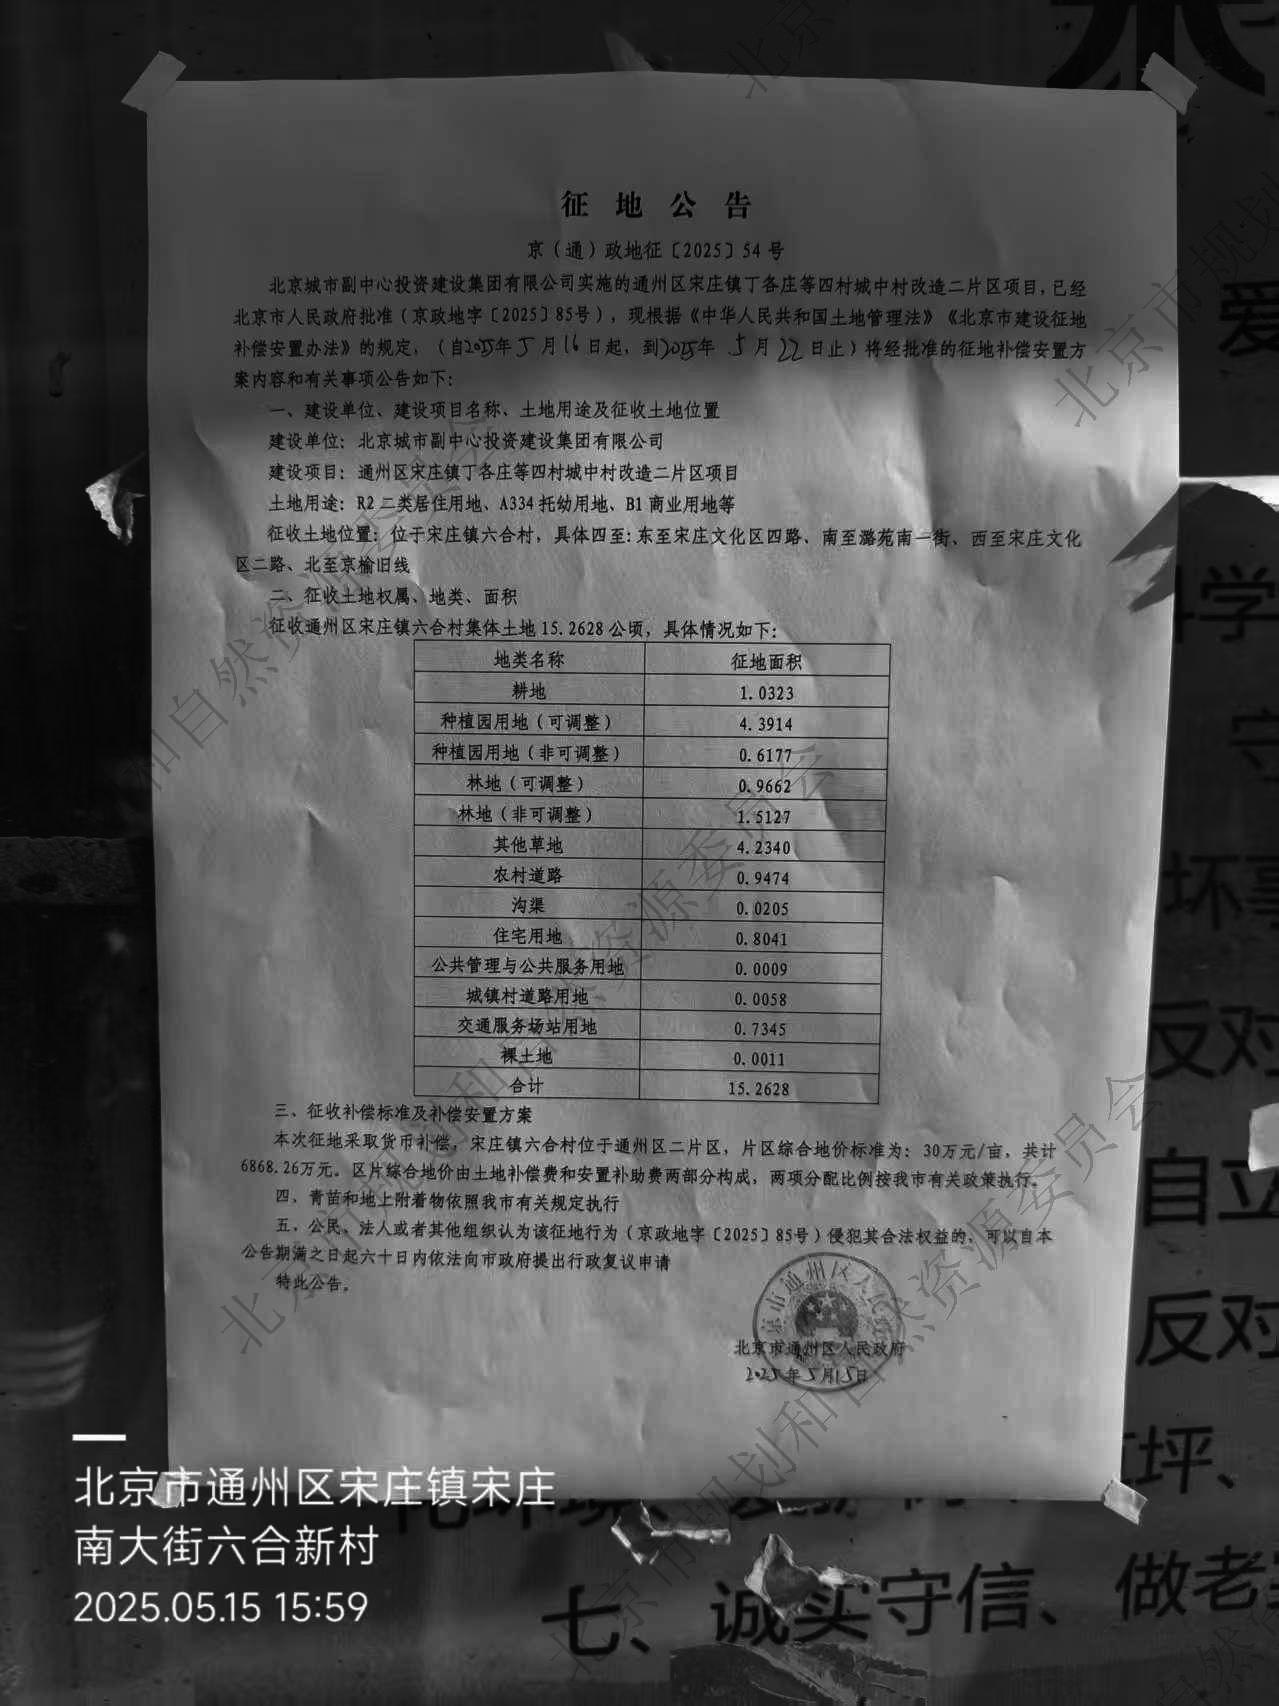 征地公告
京（通）政地征〔2025〕54号
北京城市副中心投资建设集团有限公司实施的通州区宋庄镇丁各庄等四村城中村改造二片区项目，已经
北京市人民政府批准（京政地字〔2025〕85号），现根据《中华人民共和国土地管理法》《北京市建设征地
补偿安置办法》的规定，（自2025年5月16日起，到2025年5月22日止）将经批准的征地补偿安置方
案内容和有关事项公告如下：
一、建设单位、建设项目名称、土地用途及征收土地位置
建设单位：北京城市副中心投资建设集团有限公司
建设项目：通州区宋庄镇丁各庄等四村城中村改造二片区项目
土地用途：R2二类居住用地、A334托幼用地、B1商业用地等
征收土地位置：位于宋庄镇六合村，具体四至：东至宋庄文化区四路、南至潞苑南一街、西至宋庄文化
区二路、北至京榆旧线
二、征收土地权属、地类、面积
征收通州区宋庄镇六合村集体土地15.2628公顷，具体情况如下：
地类名称 征地面积
耕地 1.0323
种植园用地（可调整） 4.3914
种植园用地（非可调整） 0.6177
林地（可调整） 0.9662
林地（非可调整） 1.5127
其他草地 4.2340
农村道路 0.9474
沟渠 0.0205
住宅用地 0.8041
公共管理与公共服务用地 0.0009
城镇村道路用地 0.0058
交通服务场站用地 0.7345
裸土地 0.0011
合计 15.2628
三、征收补偿标准及补偿安置方案
本次征地采取货币补偿，宋庄镇六合村位于通州区二片区，片区综合地价标准为：30万元/亩，共计
6868.26万元。区片综合地价由土地补偿费和安置补助费两部分构成，两项分配比例按我市有关政策执行。
四、青苗和地上附着物依照我市有关规定执行
五、公民、法人或者其他组织认为该征地行为（京政地字〔2025〕85号）侵犯其合法权益的，可以自本
公告期满之日起六十日内依法向市政府提出行政复议申请
特此公告。
北京市通州区人民政府
2025年5月15日
北京市通州区宋庄镇宋庄
南大街六合新村
2025.05.15 15:59
爱
科学
守
坏事
反对
自立
反对
坪、
七、诚实守信、做老实
北京市规划和自然资源委员会
北京市规划和自然资源委员会